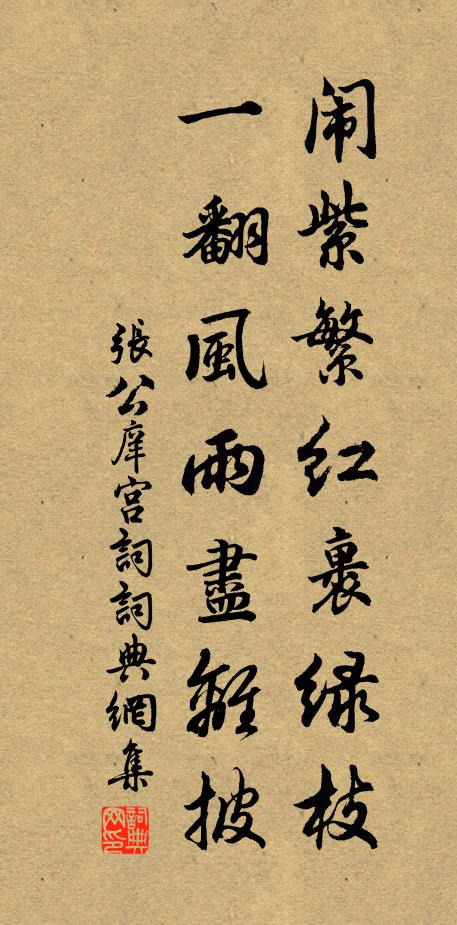 闹紫繁红裹绿枝
一翻風雨盡離披
張公庠宫詞詞典網集
詞典网印